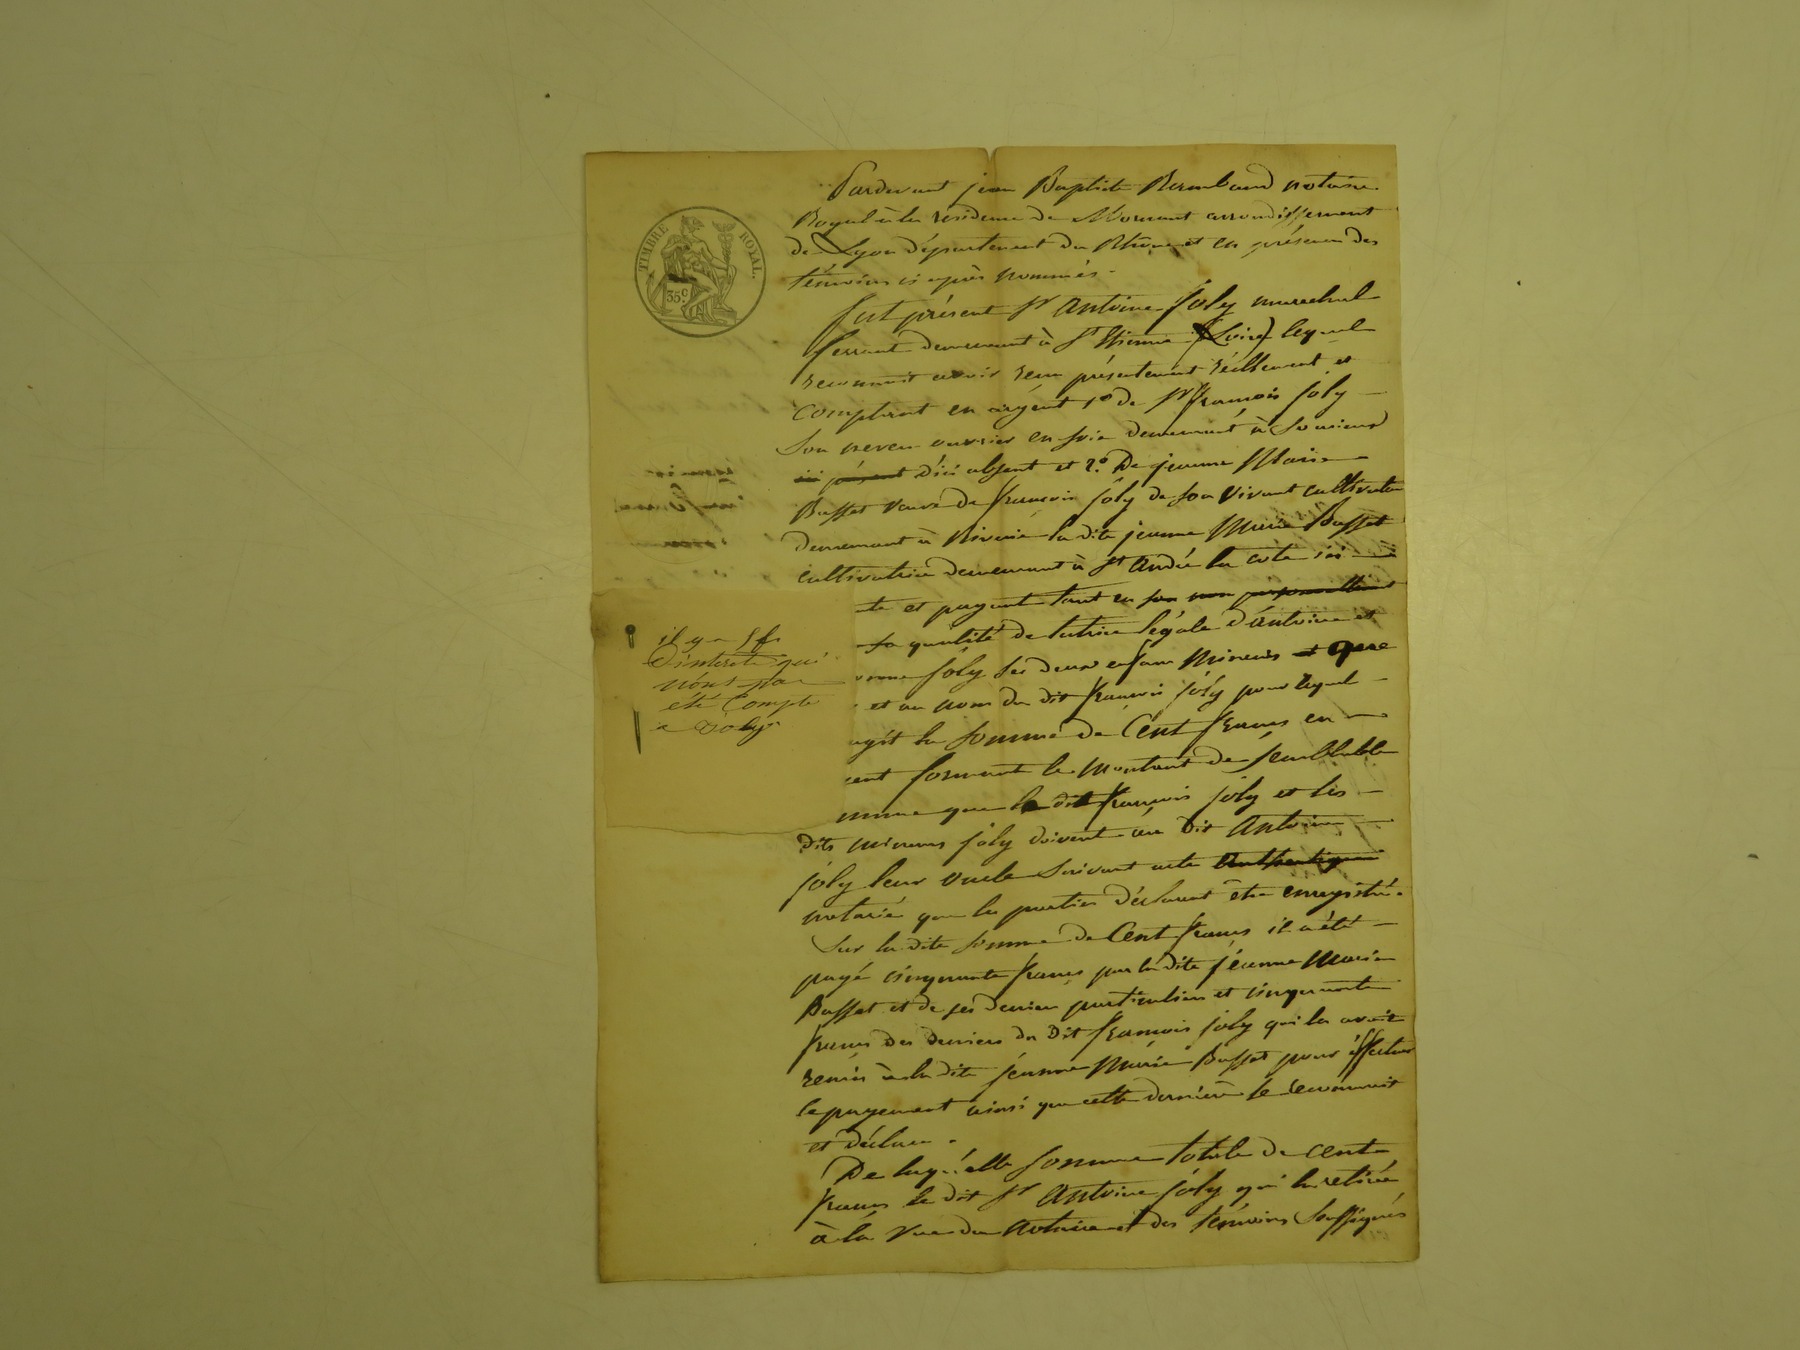 TIMBRE ROYAL.
35c
Pardevant jean Baptiste Rambaud notaire
Royal à la résidence de Mornant arrondissement
de Lyon département du Rhône et en présence des
témoins ci après nommés.
fut présent Sr Antoine joly marechal
ferrant demeurant à St Etienne (Loire) lequel
reconnait avoir reçu présentement réellement et
comptant en argent 1o de Sr françois joly
son neveu ouvrier en soie demeurant à Soucieux
ici présent d'ici absent et 2o De jeanne Marie
Basset veuve de françois joly de son vivant cultivateur
demeurant à Riverie la dite jeanne Marie Basset
cultivatrice demeurant à St André la cote ici
te et payant tant en son nom personnellement
sa qualité de tutrice légale d'Antoine et
joly ses deux enfans Mineurs et que
et au nom du dit françois joly pour lequel
agit la somme de Cent francs en
gent formant le montant de semblable
omme que le dit françois joly et les
dits mineurs joly doivent au dit Antoine
joly leur oncle suivant acte authentique
notarié que les parties déclarent être enregistré.
Sur la dite somme de Cent francs il a été
payé cinquante francs par la dite jéanne Marie
Basset et de ses deniers particuliers et cinquante
francs des deniers du Dit françois joly qui les avait
remis à la dite jéanne Marie Basset pour effectuer
le payement ainsi que cette dernière le reconnait
et déclare.
De laquelle somme totale de cent
francs le dit Sr Antoine joly qui la retirée
à la vue du notaire et des témoins soussignés
il y a 5 f
D'interets qui
n'ont pas
été Compte
a Joly